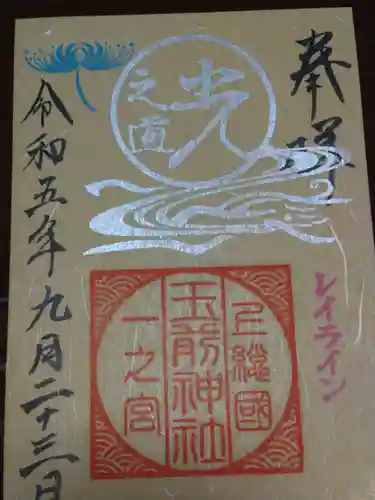 奉拝
光
之道
レイライン
上総國
玉前神社
一之宮
令和五年九月二十三日